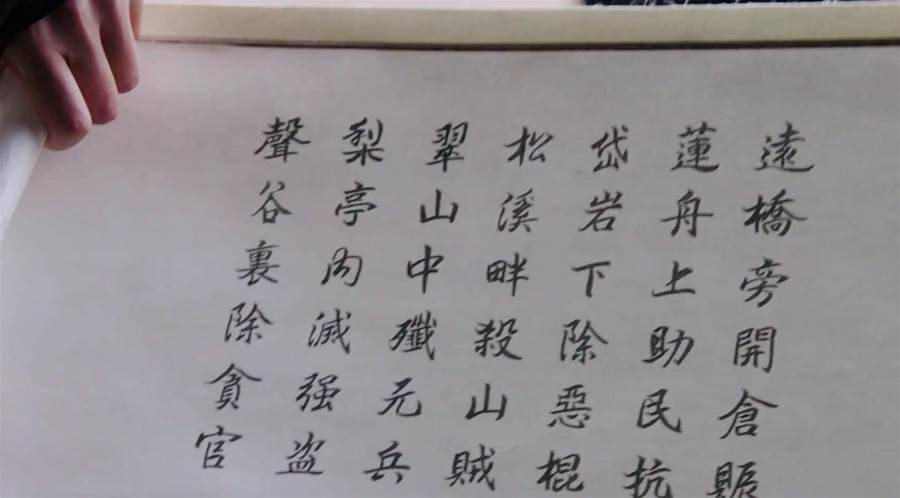 遠橋旁開倉賑
蓮舟上助民抗
岱岩下除惡棍
松溪畔殺山賊
翠山中殲元兵
梨亭內滅强盗
聲谷裏除貪官